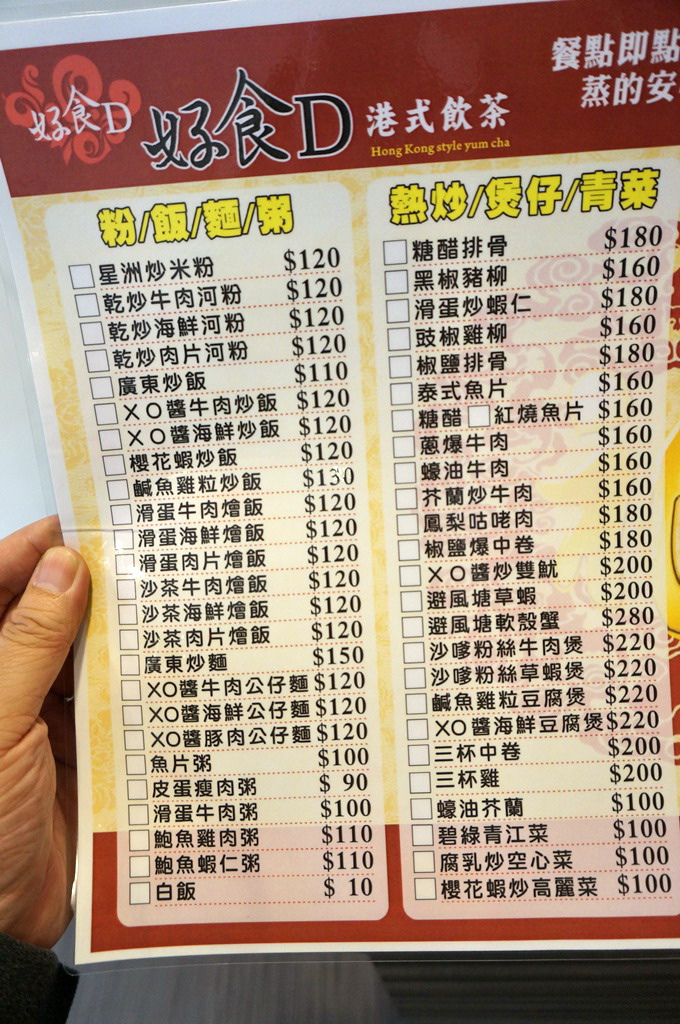 好食D
好食D
港式飲茶
Hong Kong style yum cha
餐點即點
蒸的安
粉/飯/麵/粥
星洲炒米粉 $120
乾炒牛肉河粉 $120
乾炒海鮮河粉 $120
乾炒肉片河粉 $120
廣東炒飯 $110
XO醬牛肉炒飯 $120
XO醬海鮮炒飯 $120
櫻花蝦炒飯 $120
鹹魚雞粒炒飯 $130
滑蛋牛肉燴飯 $120
滑蛋海鮮燴飯 $120
滑蛋肉片燴飯 $120
沙茶牛肉燴飯 $120
沙茶海鮮燴飯 $120
沙茶肉片燴飯 $120
廣東炒麵 $150
XO醬牛肉公仔麵 $120
XO醬海鮮公仔麵 $120
XO醬豚肉公仔麵 $120
魚片粥 $100
皮蛋瘦肉粥 $ 90
滑蛋牛肉粥 $100
鮑魚雞肉粥 $110
鮑魚蝦仁粥 $110
白飯 $ 10
熱炒/煲仔/青菜
糖醋排骨 $180
黑椒豬柳 $160
滑蛋炒蝦仁 $180
豉椒雞柳 $160
椒鹽排骨 $180
泰式魚片 $160
糖醋 紅燒魚片 $160
蔥爆牛肉 $160
蠔油牛肉 $160
芥蘭炒牛肉 $160
鳳梨咕咾肉 $180
椒鹽爆中卷 $180
XO醬炒雙魷 $200
避風塘草蝦 $200
避風塘軟殼蟹 $280
沙嗲粉絲牛肉煲 $220
沙嗲粉絲草蝦煲 $220
鹹魚雞粒豆腐煲 $220
XO醬海鮮豆腐煲 $220
三杯中卷 $200
三杯雞 $200
蠔油芥蘭 $100
碧綠青江菜 $100
腐乳炒空心菜 $100
櫻花蝦炒高麗菜 $100